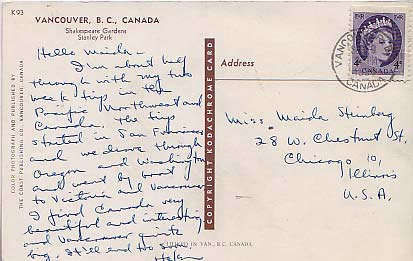 K 93
VANCOUVER, B. C., CANADA
Shakespeare Gardens
Stanley Park
Hello Maida -
I'm about half
through with my two
week trip in the
Pacific Northwest and
Canada. The trip
started in San Francisco
and we drove through
Oregon and Washington
and went by boat
to Victoria and Vancouver.
I find Canada very
beautiful and interesting
and Vancouver quite
big. It'll end too soon.
Helen
COLOR PHOTOGRAPH AND PUBLISHED BY
THE COAST PUBLISHING CO. VANCOUVER, CANADA
COPYRIGHT KODACHROME CARD
IN VAN., B.C. CANADA
Address
VANCOUVER
CANADA
4¢ 4¢
CANADA
Miss Maida Steinberg
28 W. Chestnut St.
Chicago 10,
Illinois
U.S.A.